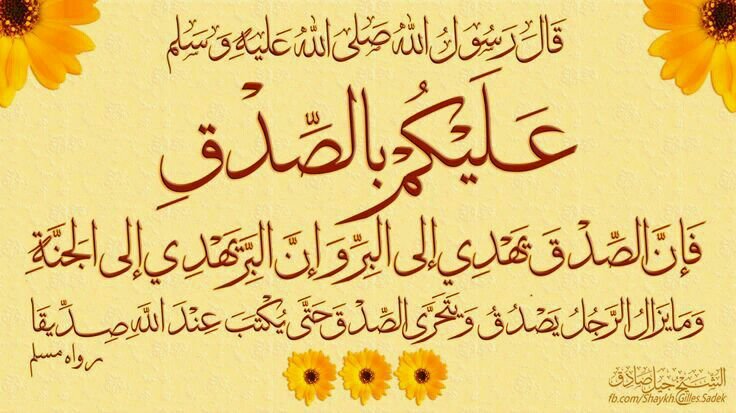 قَالَ رَسُولُ اللهِ صَلَّى اللهُ عَلَيْهِ وَسَلَّم
عَلَيْكُمْ بِالصِّدْقِ
فَإِنَّ الصِّدْقَ يَهْدِي إِلى البِرِّ وَإِنَّ البِرَّ يَهْدِي إِلى الجَنَّةِ
وَمَا يَزَالُ الرَّجُلُ يَصْدُقُ وَيَتَحَرَّى الصِّدْقَ حَتَّى يُكْتَبَ عِنْدَ اللهِ صِدِّيقًا
رواه مسلم
الشيخ جيل صادق
fb.com/Shaykh.Gilles.Sadek